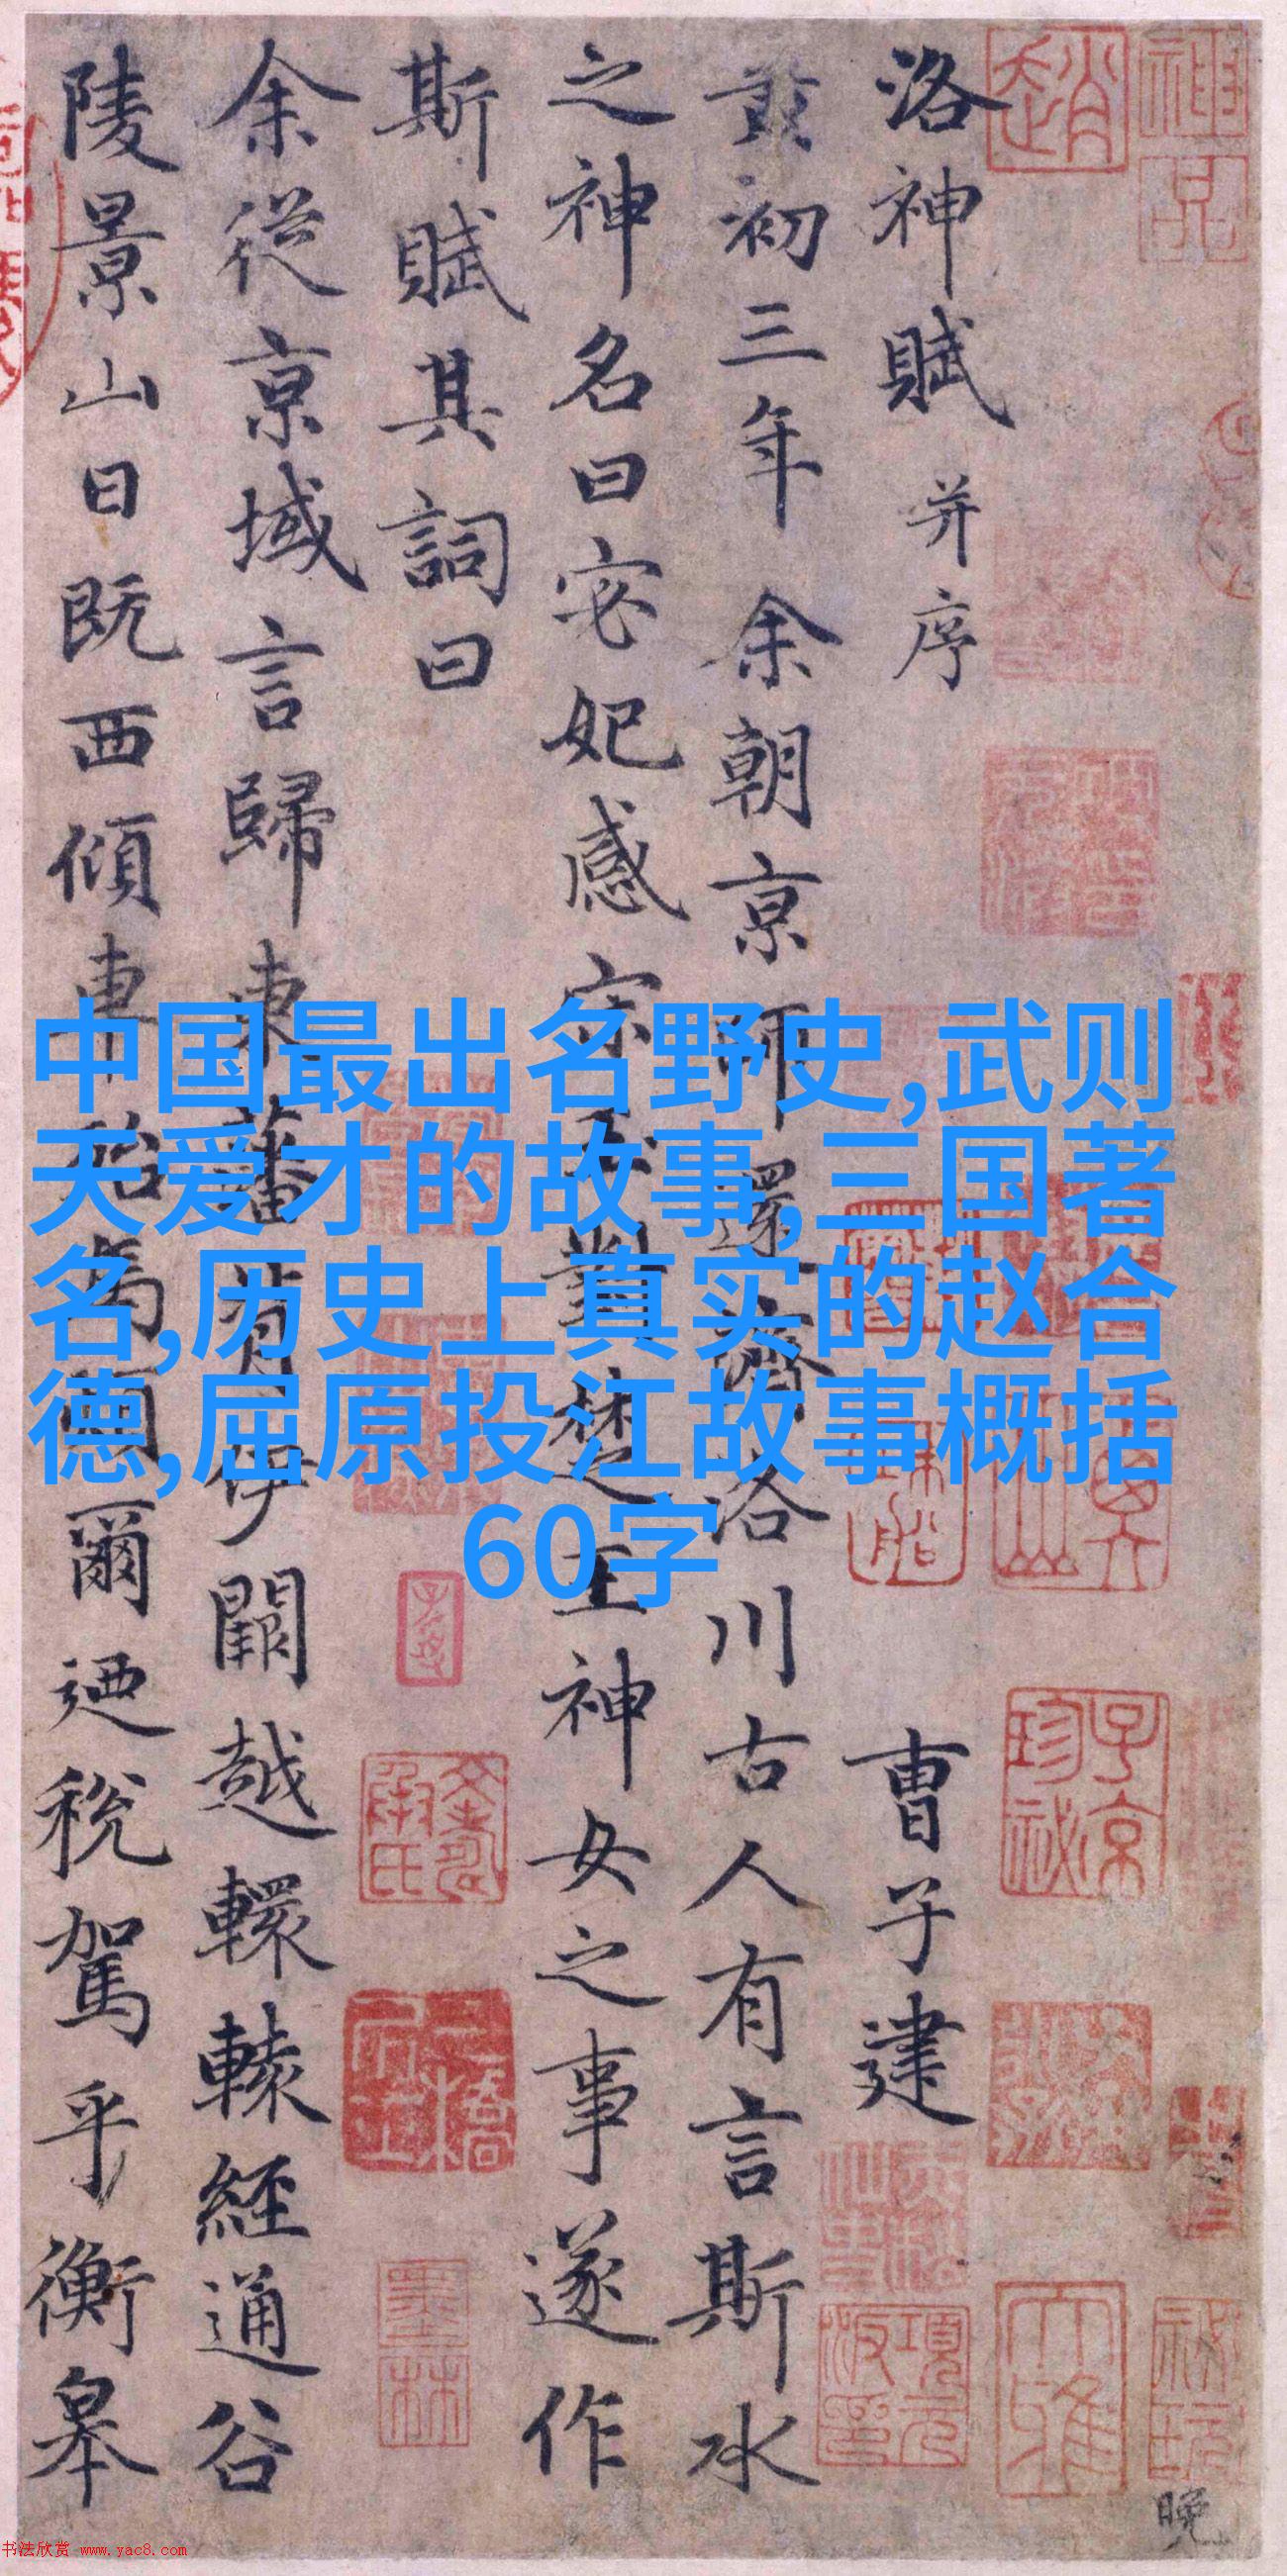 洛神賦并序 曹子建
黃初三年余朝京師還濟洛川古人有言斯水
之神名曰宓妃感宋玉對楚王神女之事遂作
斯賦其詞曰
余從京域言歸東藩背伊闕越轘轅經通谷
陵景山日既西傾車殆馬爾迺稅駕乎衡皋
中国最出名野史,武则
天爱才的故事,三国著
名,历史上真实的赵合
德,屈原投江故事概括
60字
趙
子京珍祕
項元汴印
墨林
大雅
晚
书法欣赏 www.yac8.com